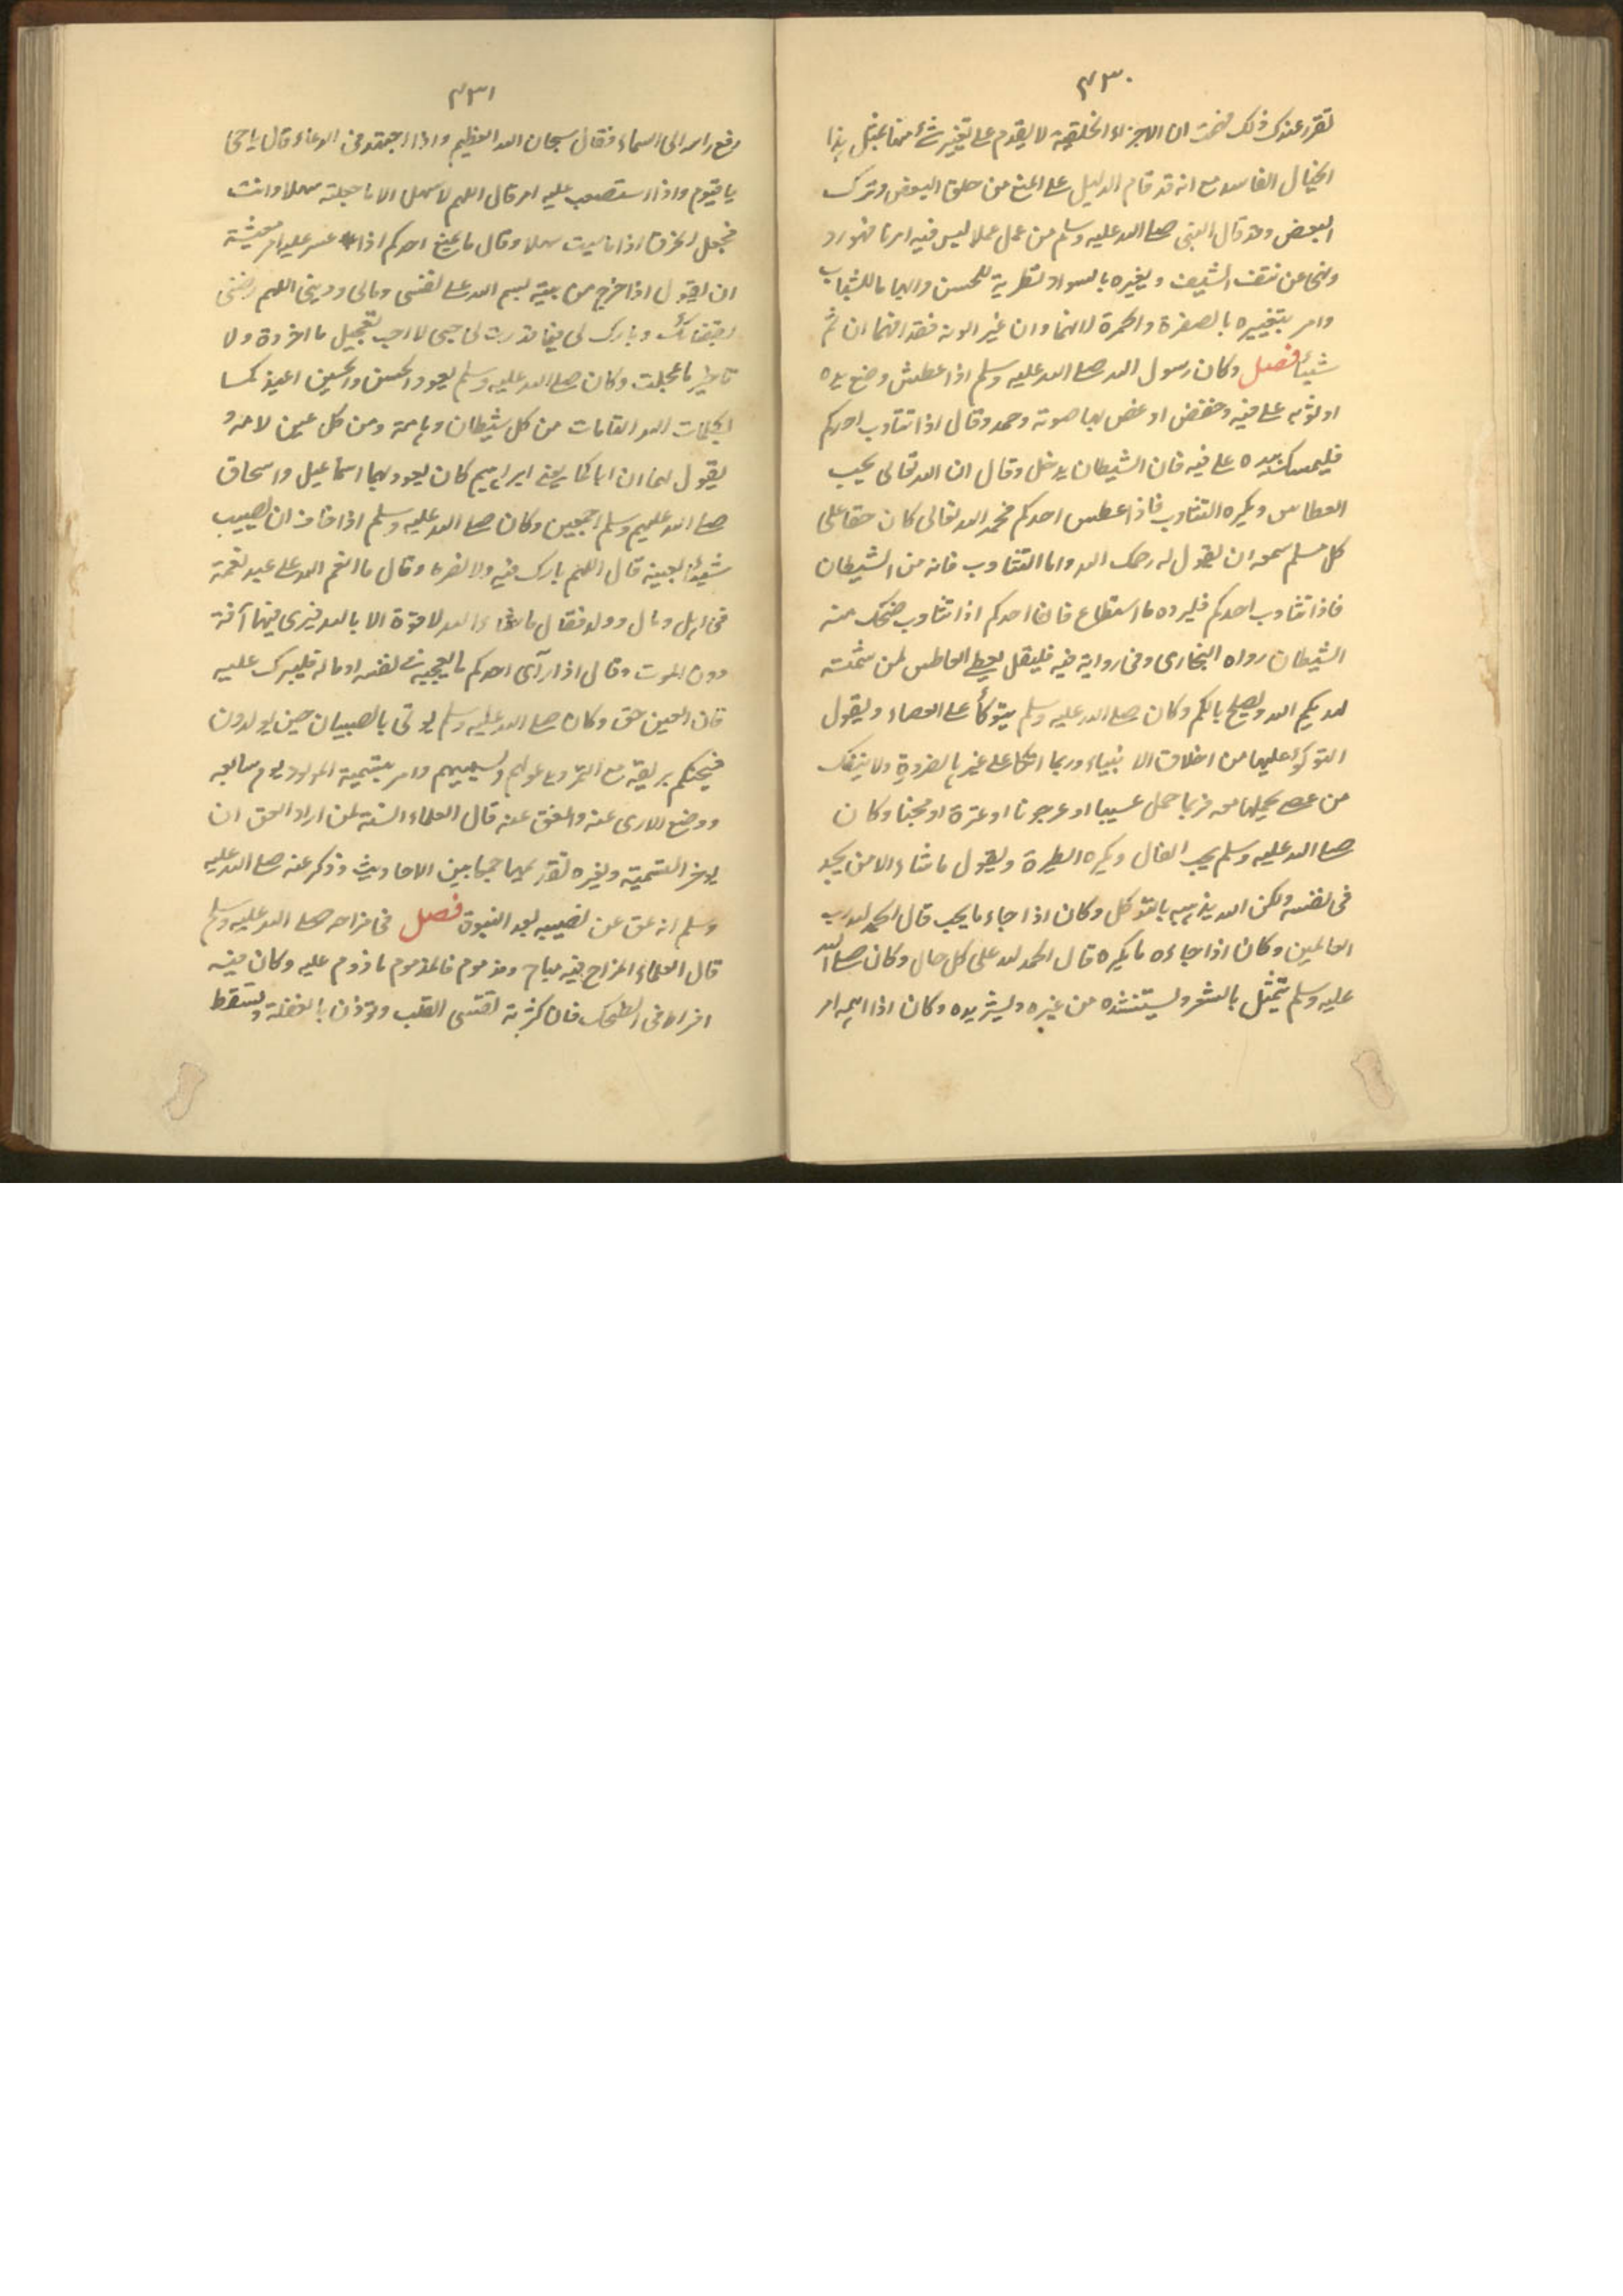 ٤٣٠
تقرر عندك ذلك فهمت ان الاجزاء الخلقية لا يقدم على تغيير شئ منها بمثل هذا
الخيال الفاسد مع انه قد قام الدليل على المنع من حلق البعض وترك
البعض وقد قال النبى صلى الله عليه وسلم من عمل عملا ليس فيه امرنا فهو رد
ونهى عن نتف الشيب وبغيره بالسواد تطرية للحسن وايهاما للشباب
وامر بتغييره بالصفرة والحمرة لانهما وان غير الونه فقد افهما ان ثم
شيئا فصل وكان رسول الله صلى الله عليه وسلم اذا عطش وضع يده
او ثوبه على فيه وخفض او غض بها صوته وحمد وقال اذا تثاوب احدكم
فليمسك بيده على فيه فان الشيطان يدخل وقال ان الله تعالى يحب
العطاس ويكره التثاوب فاذا عطس احدكم فحمد الله تعالى كان حقا على
كل مسلم سمعه ان يقول له رحمك الله واما التثاوب فانه من الشيطان
فاذا تثاوب احدكم فليرده ما استطاع فان احدكم اذا تثاوب ضحك منه
الشيطان رواه البخارى وفى رواية فيه فليقل العاطس لمن شمته
يهديكم الله ويصلح بالكم وكان صلى الله عليه وسلم يتوكأ على العصاء ويقول
التوكؤ عليها من اخلاق الانبياء وربما اتكا على غيرها لضرورة ولا ينفك
من عصى يحملها معه فربما حمل عسيبا او عرجونا او عنزة او محجنا وكان
صلى الله عليه وسلم يحب الفال ويكره الطيرة ويقول ما منا الا من يجد
فى نفسه ولكن الله يذهبه بالتوكل وكان اذا جاء ما يحب قال الحمد لله رب
العالمين وكان اذا جاءه ما يكره قال الحمد لله على كل حال وكان صلى الله
عليه وسلم يتمثل بالشعر ويستنشده من غيره ويستزيده وكان اذا اهمه امر
٤٣١
رفع راسه الى السماء فقال سبحان الله العظيم واذا اجتهد فى الدعاء قال يا حى
يا قيوم واذا استصعب عليه امر قال اللهم لا سهل الا ما جعلته سهلا وانت
تجعل الحزن اذا ما شيت سهلا وقال ما يمنع احدكم اذا عسر عليه امر معيشة
ان يقول اذا خرج من بيته بسم الله على نفسى ومالى ودينى اللهم رضنى
بقضائك وبارك لى فيما قدرت لى حتى لا احب تعجيل ما اخرت ولا
تاخير ما عجلت وكان صلى الله عليه وسلم يعوذ الحسن والحسين اعيذكما
بكلمات الله التامات من كل شيطان وهامة ومن كل عين لامه و
يقول لهما ان اباكما يعنى ابراهيم كان يعوذ بهما اسماعيل واسحاق
صلى الله عليهم وسلم اجمعين وكان صلى الله عليه وسلم اذا خاف ان يصيب
شيئا بعينه قال اللهم بارك فيه ولا تضره وقال ما انعم الله على عبد نعمة
فى اهل ومال وولد فقال ما شاء الله لا قوة الا بالله فيرى فيها آفة
دون الموت وقال اذا رآى احدكم ما يعجبه فى نفسه او ماله فليبرك عليه
فان العين حق وكان صلى الله عليه وسلم يوتى بالصبيان حين يولدون
فيحنكهم بريقه مع التمر ويدعو لهم ويسميهم وامر بتسمية المولود يوم سابعه
ووضع الاذى عنه والعق عنه قال العلماء السنة لمن اراد العق ان
يوخر التسمية ولغيره تقديمها جمعا بين الاحاديث وذكر عنه صلى الله عليه
وسلم انه عق عن نفسه بعد النبوة فصل فى مزاحه صلى الله عليه وسلم
قال العلماء المزاح فيه مباح ومذموم فالمذموم ما دووم عليه وكان فيه
افراط فى الضحك فان كثرته تقسى القلب وتوذن بالغفلة وتسقط